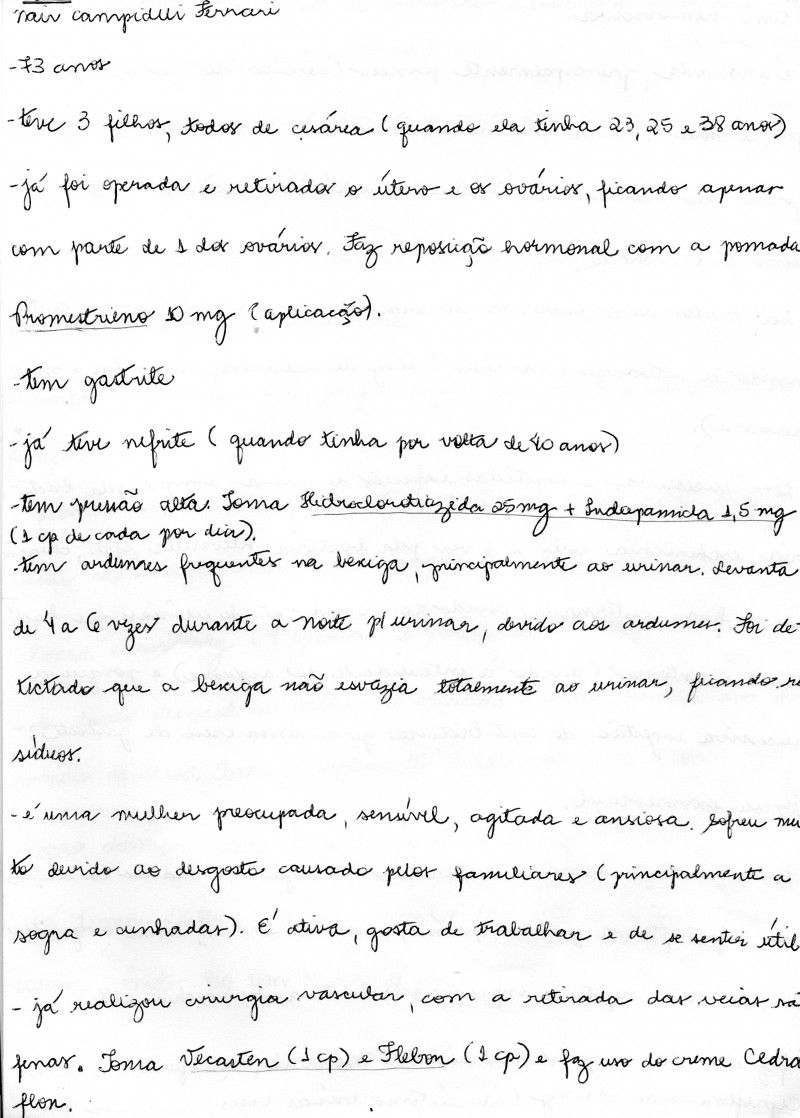 Nair Campidelli Ferrari
-73 anos
-teve 3 filhos, todos de cesárea (quando ela tinha 23, 25 e 38 anos)
-já foi operada e retirados o útero e os ovários, ficando apenas
com parte de 1 dos ovários. Faz reposição hormonal com a pomada
Promestrieno 10 mg (aplicação).
-tem gastrite
-já teve nefrite (quando tinha por volta de 40 anos)
-tem pressão alta. Toma Hidroclorotiazida 25mg + Indapamida 1,5 mg
(1 cp de cada por dia).
-tem ardumes frequentes na bexiga, principalmente ao urinar. Levanta
de 4 a 6 vezes durante a noite p/ urinar, devido aos ardumes. Foi de-
tectado que a bexiga não esvazia totalmente ao urinar, ficando re
síduos.
-é uma mulher preocupada, sensível, agitada e ansiosa. Sofreu mui
to devido ao desgosto causado pelos familiares (principalmente a
sogra e cunhadas). É ativa, gosta de trabalhar e de se sentir útil
-já realizou cirurgia vascular, com a retirada das veias sa
fenas. Toma Vecasten (1 cp) e Flebon (1 cp) e faz uso do creme Cedra
flon.